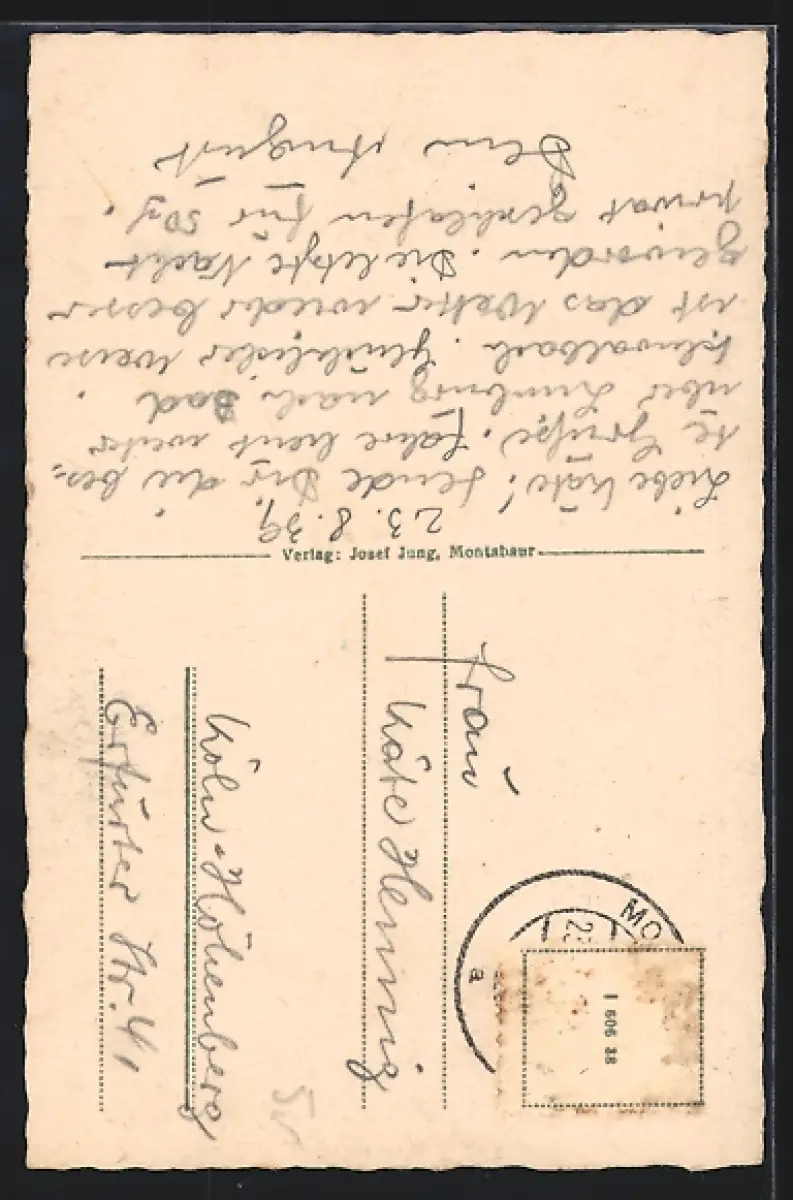 23.8.39.
Liebe Käte! Sende Dir die bes-
te Grüße. Fahre heut weiter
über Limburg nach Bad
Schwalbach. Glücklicher weise
ist das Wetter wieder besser
geworden. Die letzte Nacht
privat geschlafen für 50 ₰.
Dein August
Verlag: Josef Jung, Montabaur
Frau
Käte Henning
Köln-Höhenberg
Erfurter Str. 41
MO
a
I 606 38